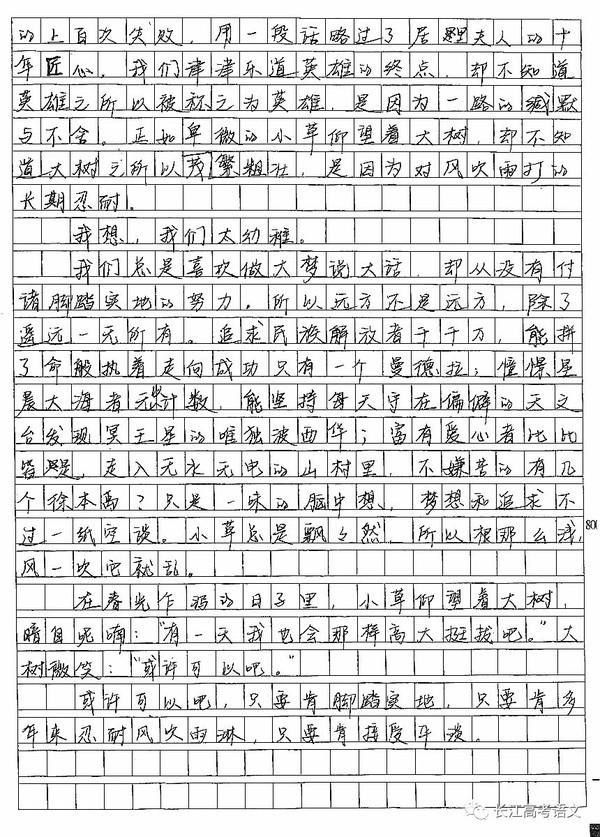 的上百次失败，用一段话略过了居里夫人的十
年匠心。我们津津乐道英雄的终点，却不知道
英雄之所以被称之为英雄，是因为一路的缄默
与不舍。正如卑微的小草仰望着大树，却不知
道大树之所以茂繁粗壮，是因为对风吹雨打的
长期忍耐。
我想，我们太幼稚。
我们总是喜欢做大梦说大话，却从没有付
诸脚踏实地的努力。所以远方不是远方，除了
遥远一无所有。追求民族解放者千千万，能拼
了命般执着走向成功只有一个曼德拉；憧憬星
晨大海者无计数，能坚持每天守在偏僻的天文
台发现冥王星的唯独波西华；富有爱心者比比
皆是，走入无水无电的山村里，不嫌苦的有几
个徐本禹？只是一味的脑中想，梦想和追求不
过一纸空谈。小草总是飘飘然，所以根那么浅，
风一吹它就乱。
在春光乍泻的日子里，小草仰望着大树，
暗自呢喃：“有一天我也会那样高大挺拔吧。”大
树微笑：“或许可以吧。”
或许可以吧，只要肯脚踏实地，只要肯多
年来忍耐风吹雨淋，只要肯接受平淡。
800
长江高考语文